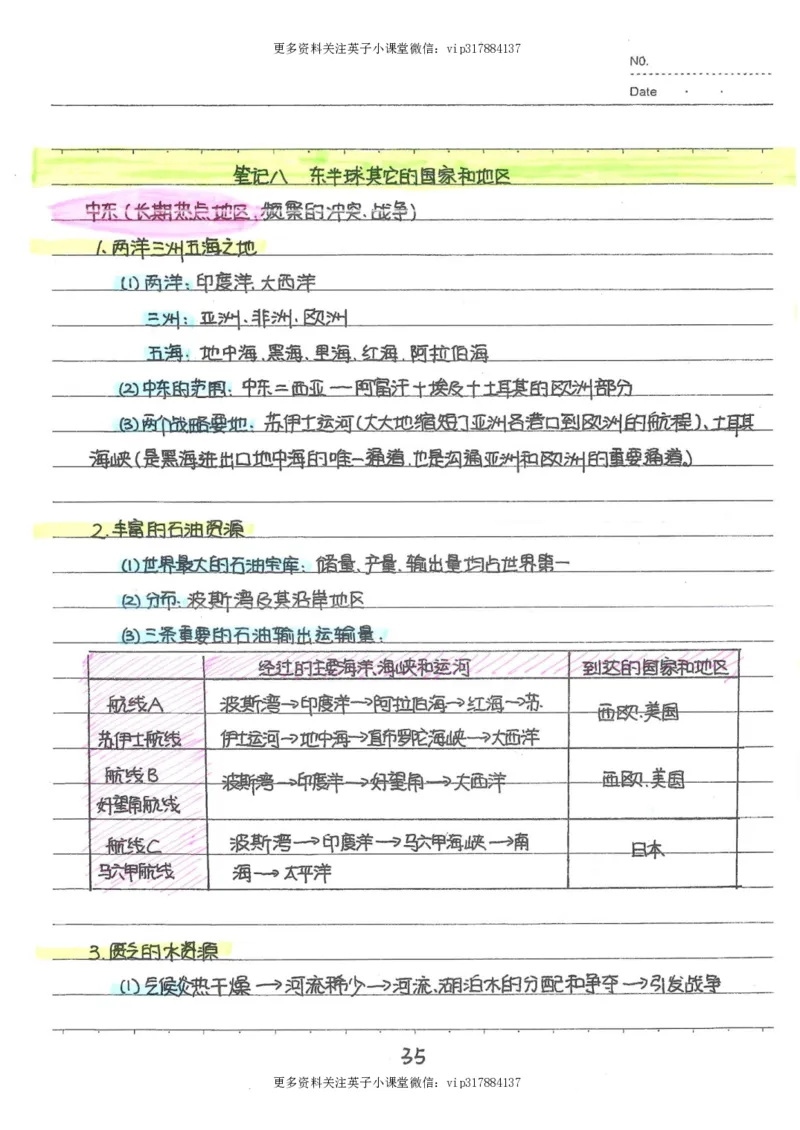 更多资料关注英子小课堂微信：vip317884137
NO.
Date
笔记八 东半球其它的国家和地区
中东(长期热点地区,频繁的冲突、战争)
1.两洋三洲五海之地
(1)两洋：印度洋、大西洋
三洲：亚洲、非洲、欧洲
五海：地中海、黑海、里海、红海、阿拉伯海
(2)中东的范围：中东=西亚一阿富汗+埃及+土耳其的欧洲部分
(3)两个战略要地：苏伊士运河(大大地缩短了亚洲各港口到欧洲的航程)、土耳其
海峡(是黑海进出口地中海的唯一通道,也是沟通亚洲和欧洲的重要通道。)
2.丰富的石油资源
(1)世界最大的石油宝库：储量、产量、输出量均占世界第一
(2)分布：波斯湾及其沿岸地区
(3)三条重要的石油输出运输量：
经过的主要海洋、海峡和运河 到达的国家和地区
航线A 波斯湾→印度洋→阿拉伯海→红海→苏 西欧、美国
苏伊士航线 伊士运河→地中海→直布罗陀海峡→大西洋
航线B 波斯湾→印度洋→好望角→大西洋 西欧、美国
好望角航线
航线C 波斯湾→印度洋→马六甲海峡→南 日本
马六甲航线 海→太平洋
3.匮乏的水资源
(1)气候炎热干燥→河流稀少→河流、湖泊水的分配和争夺→引发战争
35
更多资料关注英子小课堂微信：vip317884137